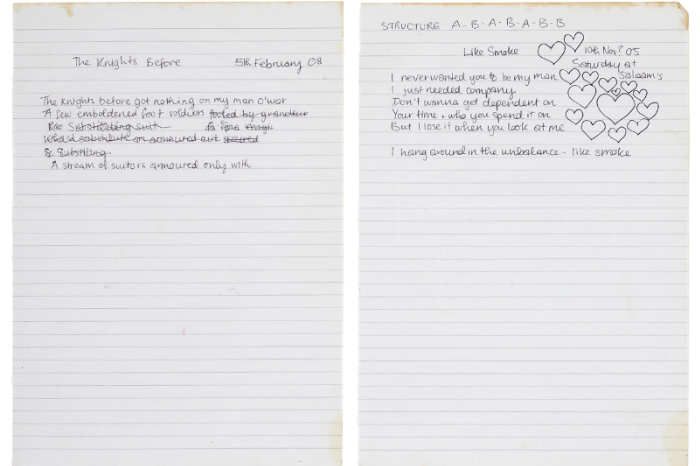 The Knights Before 5th February 08
The Knights before got nothing on my man o'war
A few emboldened foot soldiers fooled by grandeur
Substituting suit
Who'd substitute an armoured suit
& Substituting
A stream of suitors armoured only with
STRUCTURE A-B-A-B-A-B-B
Like Smoke 10th Nov? 05
Saturday at
Salaam's
I never wanted you to be my man
I just needed company
Don't wanna get dependent on
Your time + who you spend it on
But I lose it when you look at me
I hang around in the unbalance - like smoke